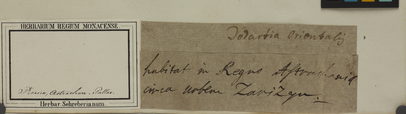 HERBARIUM REGIUM MONACENSE
Russia, Astrachan. Pallas.
Herbar. Schreberianum.
Dodartia orientalis
habitat in Regno Astrachaniæ
circa urbem Zarizyn.